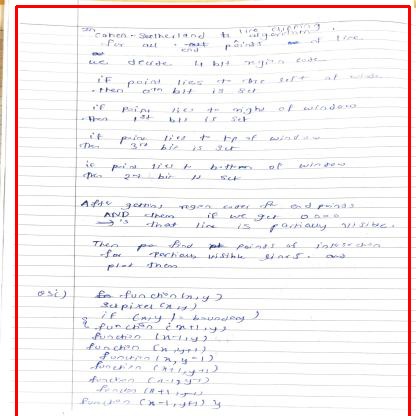 In
Cohen-Sutherland line clipping algorithm
for all end points of line
we decide 4 bit region code
if point lies to the left of window
then 0th bit is set
if point lies to right of window
then 1st bit is set
if point lies to top of window
then 3rd bit is set
if point lies to bottom of window
then 2nd bit is set
After getting region codes of end points
AND them if we get 0000
that line is partially visible.
Then find points of intersection
for partially visible lines and
plot them
i) function(x,y)
setpixel(x,y)
if (x,y != boundary)
{ function (x+1,y)
function (x-1,y)
function (x,y+1)
function (x,y-1)
function (x+1,y+1)
function
function
function (x-1,y+1) }